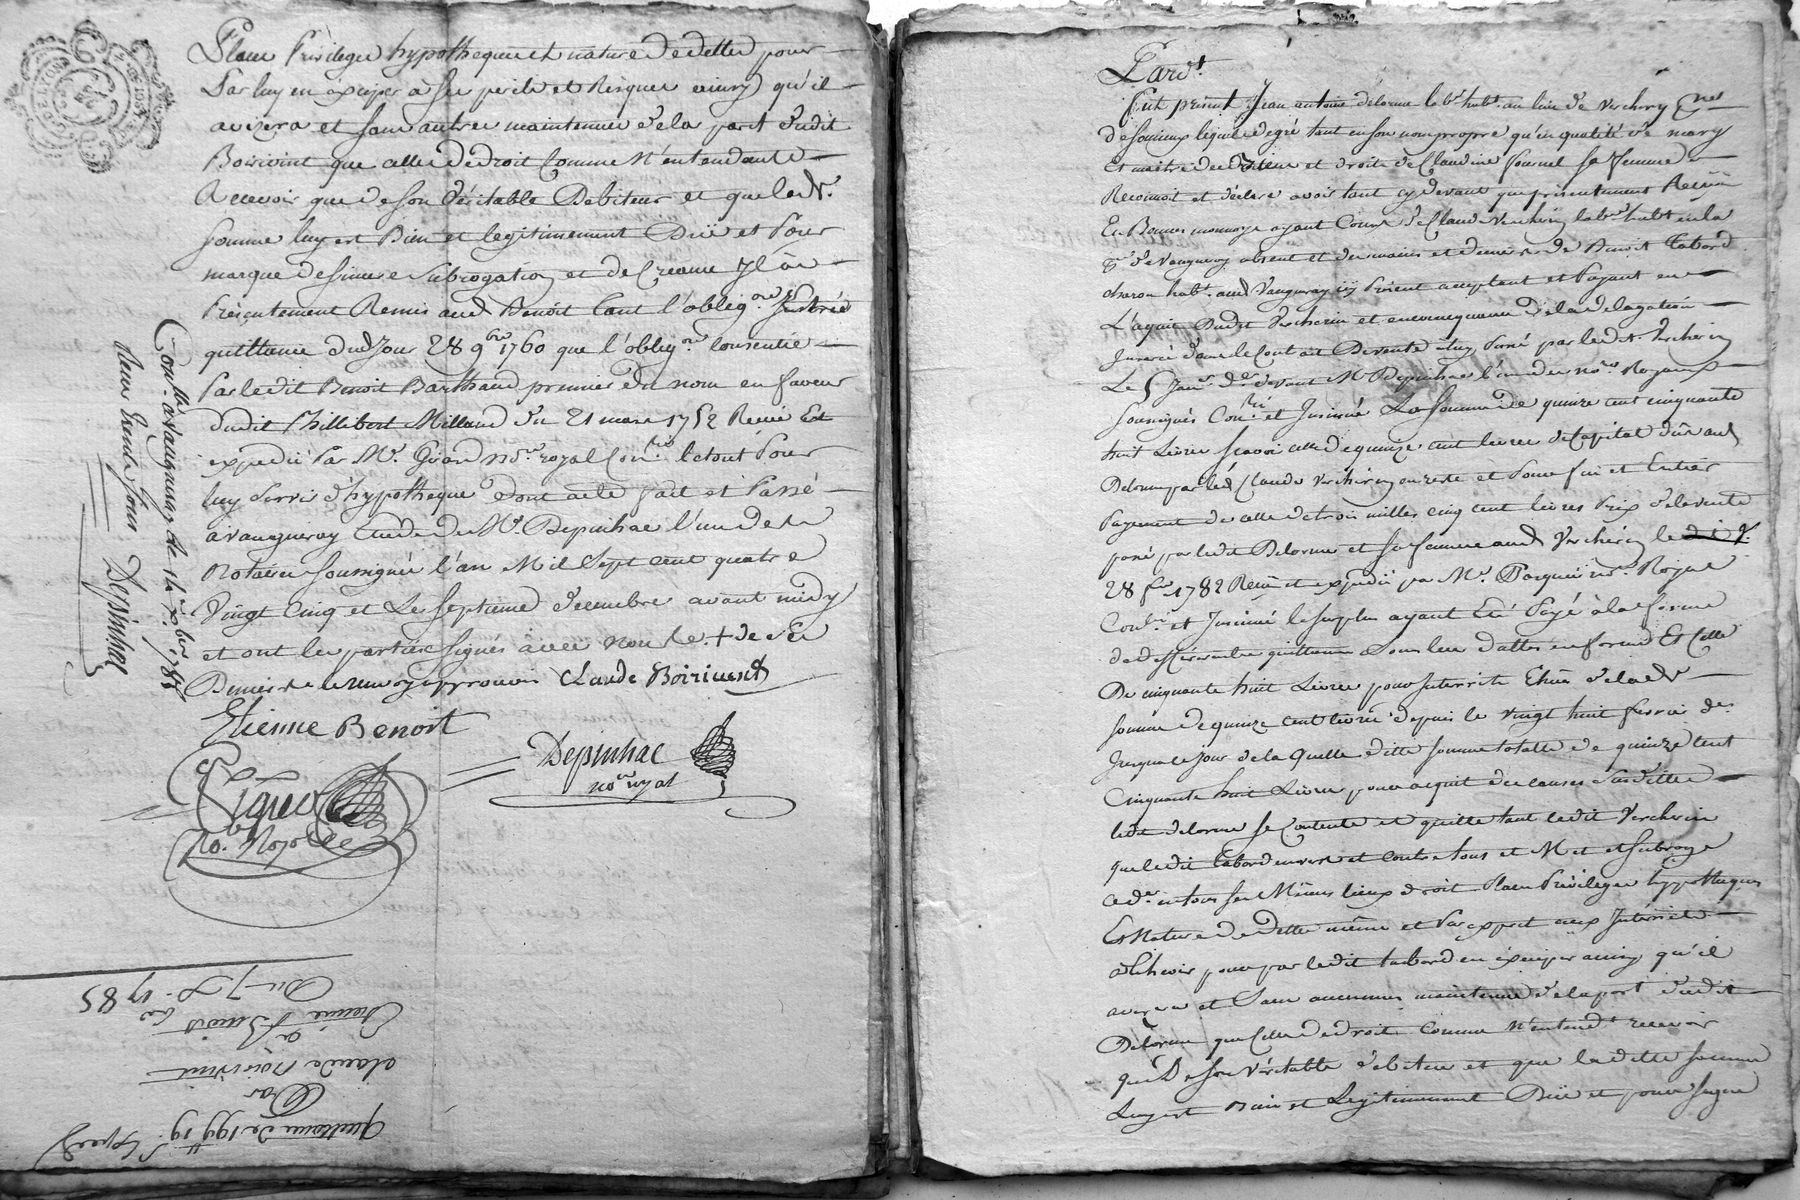 Place Privileges hypotheque et nature de dettes pour
Par luy en exciper à ses perils et Risques ainsy qu'il
avisera et sans autres maintenues de la part dudit
Boirivint que celle de droit Comme N'entendant
Recevoir que de son Véritable Debiteur et que lade.
somme luy est Bien et legitimement Düe et Pour
marque de sincere subrogation et de Creance Il a
Présentement Remis aud. Benoit tant l'oblig.on
quittance dud. Jour 28 9bre 1760 que l'oblig.on Consentie
Par ledit Benoit Barthaud premier du nom en faveur
dudit Phillibert Milland du 21 mars 1752 Reçüe Et
expediée Par Me. Guion No.re royal Con.lée le tout Pour
luy servir d'hypotheque dont acte fait et Passé
a vaugneray Etude de Me. Depinhac l'un des
Notaires soussignés l'an Mil Sept cent quatre
Vingt Cinq et Le septieme decembre avant midy
et ont les parties signés avec nous
Claude Boirivent
Etienne Benoit
Depinhac
no.re royal
No. Royal
Con.llé a Vaugneray le 14 xbre 1785
Reçu trente sous Depinhac
Du 7 x. 1785
Etienne Benoit
à
claude Boirivint
Par
quittance de 199 lt 19 s.
Exped.
Pard.t
Fut présent Jean antoine delorme lab.r hab.t au lieu de Verchery
de soucieux lequel de gré tant en son nom propre qu'en qualité de mary
Et maitre des Dotaux et droits de Claudine fournel sa femme
Reconnoit et déclare avoir tant cy devant que présentement Reçu
En Bonnes monnoye ayant Cours de Claude Vercherin lab.r hab.t en la
p.sse de Vaugneray absent et des mains et deniers de Benoit Tabard
charon hab.t aud. Vaugneray icy Présent acceptant et Payant en
L'aquit Dudit Vercherin et en consequence de la delegation
Inserée dans le Contrat De vente a luy Passé par ledit Vercherin
Le 5 Janv. der. devant Me Depinhac l'un des no.res Royaux
soussignés Con.lé et Insinué La somme de quinze cent cinquante
huit Livres scavoir celle de quinze cent livres de Capital düe aud.
Delorme par led. Claude Vercherin en reste et Pour fin et Entier
Payement de celle de trois milles cinq cent livres Prix de la vente
passé par ledit Delorme et sa femme aud. Vercherin le
28 fer. 1782 Reçu et expedié par Me. no.re Royal
Con.lé et Insinué le surplus ayant Eté Payé à la forme
de differentes quittances sous leur dattes en forme Et Celle
De cinquante huit Livres pour Interrets Echus de lade.
somme de quinze cent livres depuis le vingt huit fevrier der.
Jusqu'a ce jour de la Quelle ditte somme totalle de quinze Cent
Cinquante huit Livres pour acquit des causes susdittes
ledit delorme se Contente et quitte tant ledit Vercherin
que ledit Tabard envers et contre tous et Met et subroge
ce der. en tous ses Mêmes lieux droit Place Privileges hypotheques
Et Nature de Dette même et Par exprest aux Interrets
a Echeoir pour par ledit tabard en exciper ainsy qu'il
avisera et Sans aucunnes maintenue de la part dudit
Delorme que Celle de droit Comme N'entend.t recevoir
que De son Véritable debiteur et que la ditte somme
Luy est Bien et Legitimement Düe et pour signe